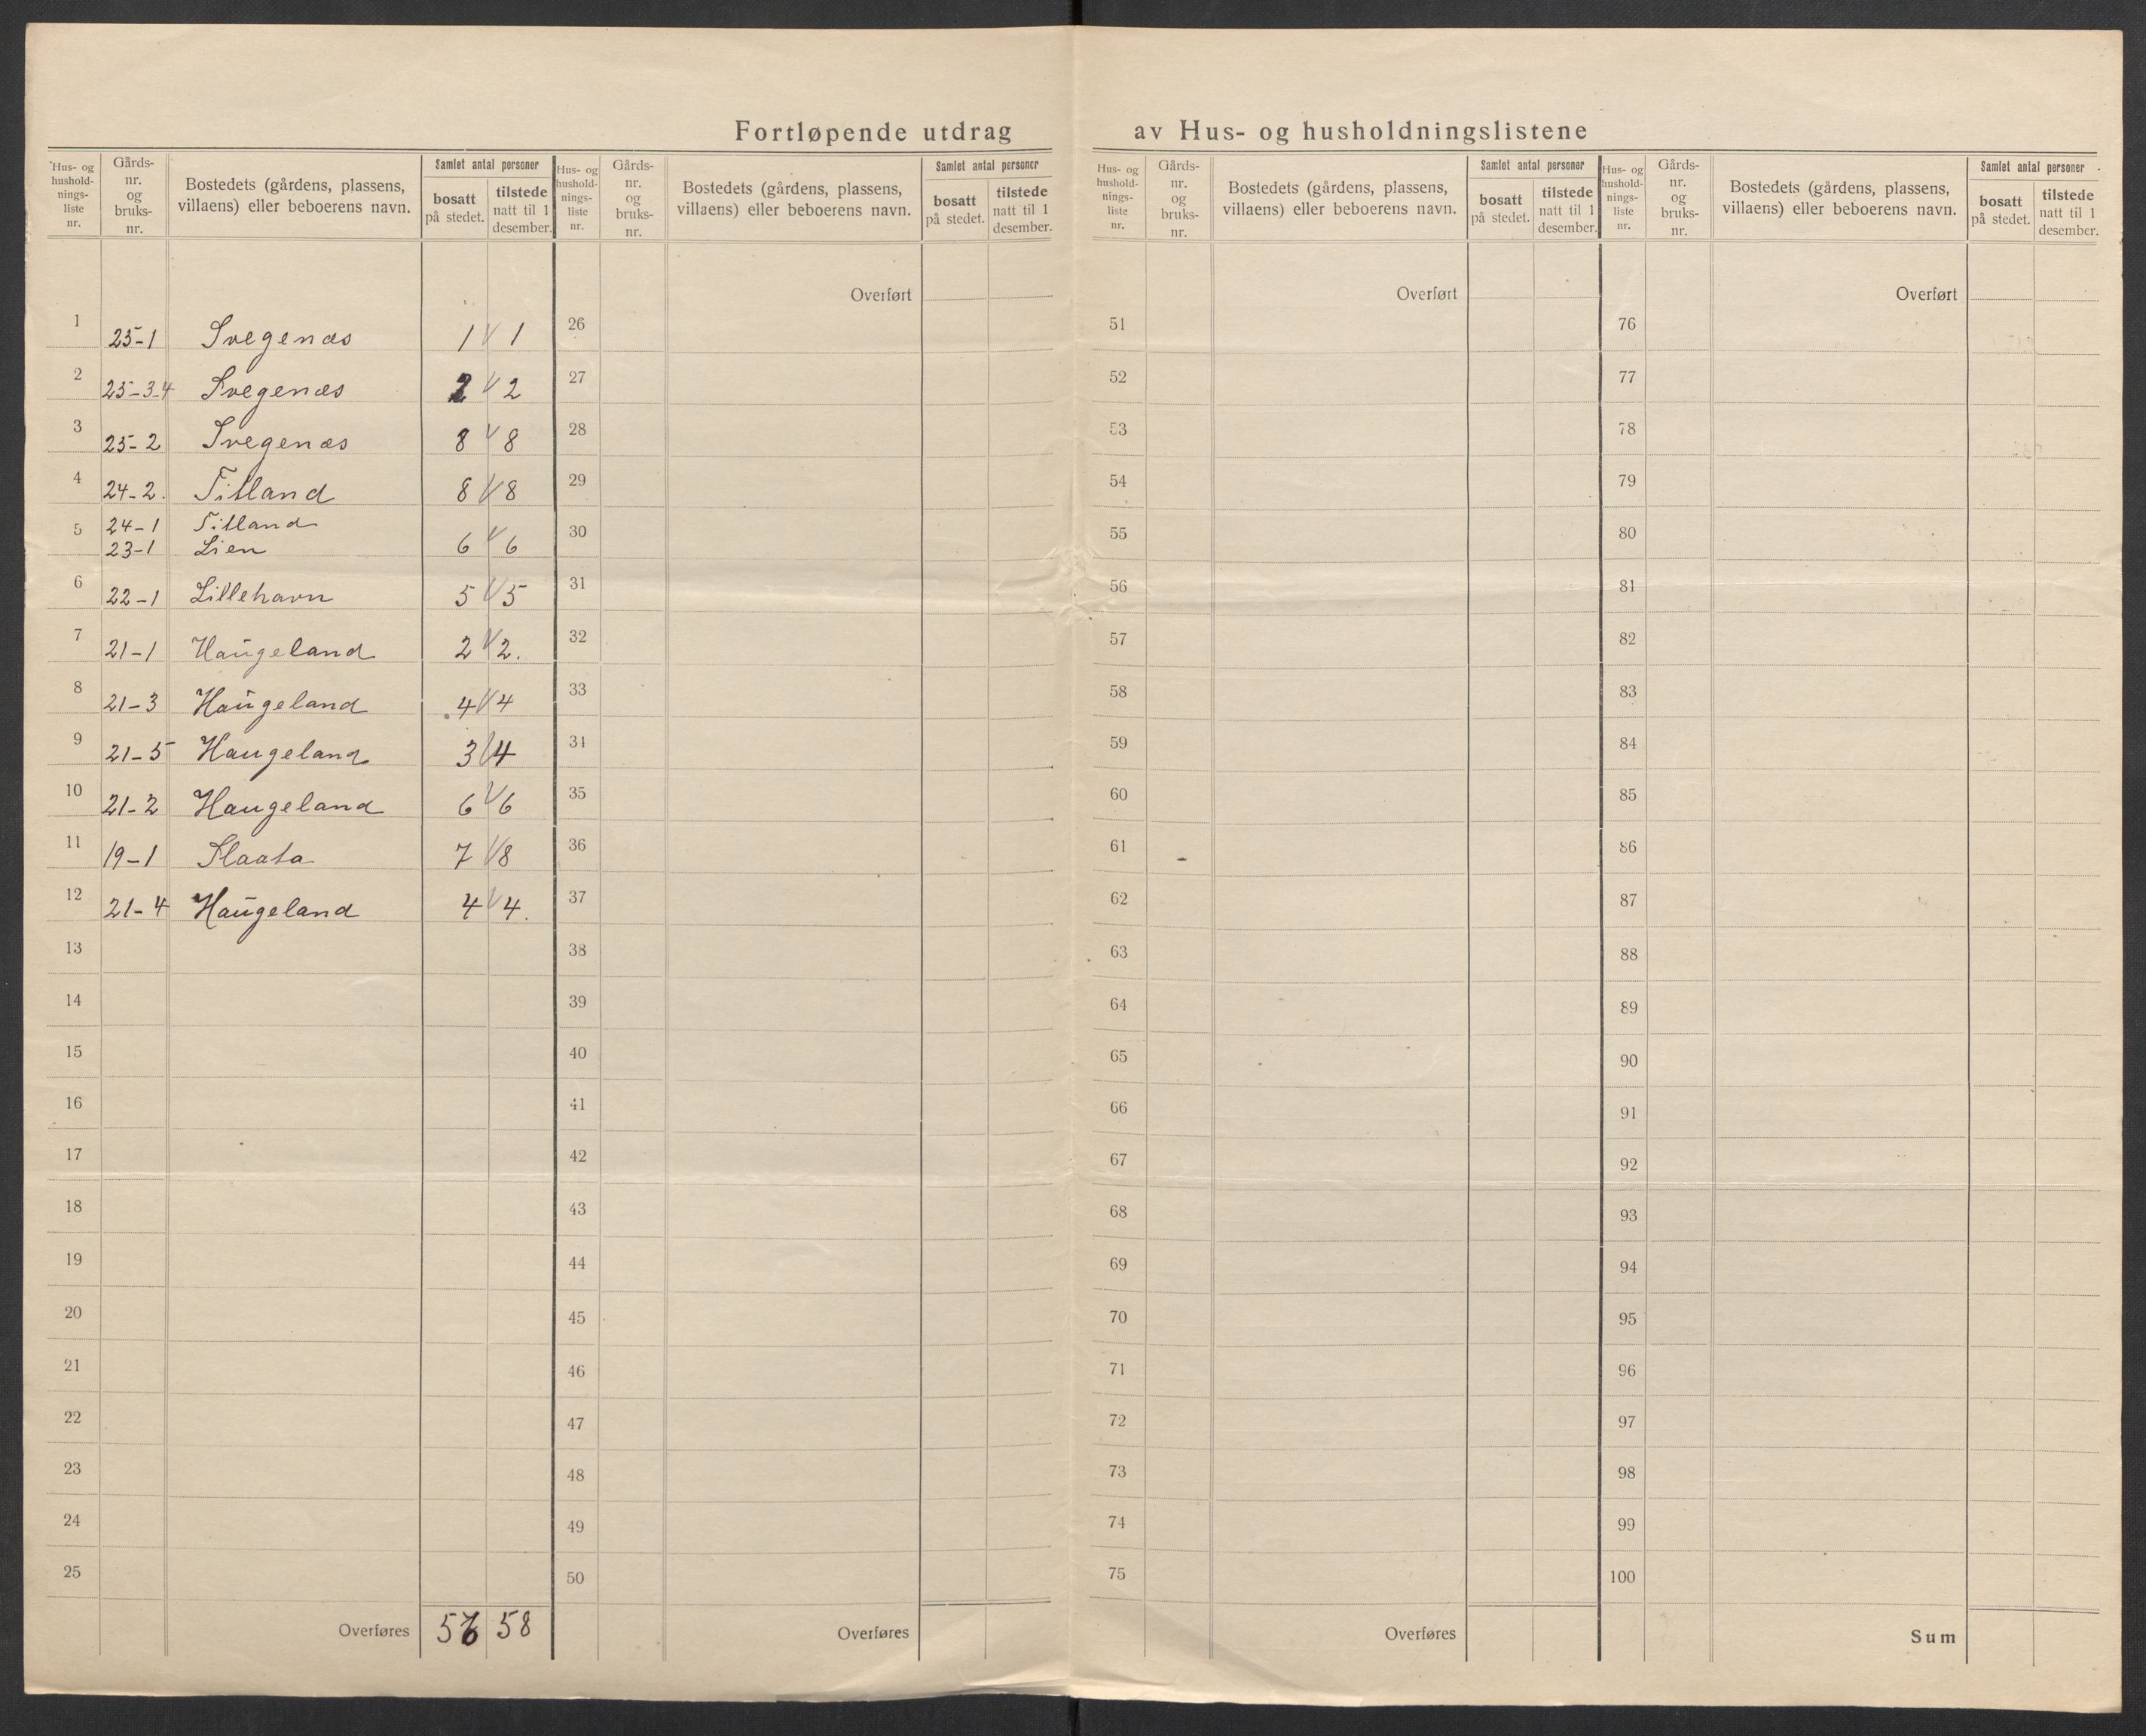 Fortløpende utdrag av Hus- og husholdningslistene
Hus- og husholdnings-liste nr. | Gårds-nr. og bruks-nr. | Bostedets (gårdens, plassens, villaens) eller beboerens navn. | Samlet antal personer | bosatt på stedet. | tilstede natt til 1 desember.
1 | 25-1 | Svegenæs | 1 | 1
2 | 25-3-4 | Svegenæs | 2 | 2
3 | 25-2 | Svegenæs | 8 | 8
4 | 24-2. | Titland | 8 | 8
5 | 24-1 | Titland
23-1 | Lien | 6 | 6
6 | 22-1 | Lillehavn | 5 | 5
7 | 21-1 | Haugeland | 2 | 2.
8 | 21-3 | Haugeland | 4 | 4
9 | 21-5 | Haugeland | 3 | 4
10 | 21-2 | Haugeland | 6 | 6
11 | 19-1 | Slaata | 7 | 8
12 | 21-4 | Haugeland | 4 | 4.
13
14
15
16
17
18
19
20
21
22
23
24
25
Overføres | 56 | 58
Hus- og husholdnings-liste nr. | Gårds-nr. og bruks-nr. | Bostedets (gårdens, plassens, villaens) eller beboerens navn. | Samlet antal personer | bosatt på stedet. | tilstede natt til 1 desember.
Overført
26
27
28
29
30
31
32
33
34
35
36
37
38
39
40
41
42
43
44
45
46
47
48
49
50
Overføres
Hus- og husholdnings-liste nr. | Gårds-nr. og bruks-nr. | Bostedets (gårdens, plassens, villaens) eller beboerens navn. | Samlet antal personer | bosatt på stedet. | tilstede natt til 1 desember.
Overført
51
52
53
54
55
56
57
58
59
60
61
62
63
64
65
66
67
68
69
70
71
72
73
74
75
Overføres
Hus- og husholdnings-liste nr. | Gårds-nr. og bruks-nr. | Bostedets (gårdens, plassens, villaens) eller beboerens navn. | Samlet antal personer | bosatt på stedet. | tilstede natt til 1 desember.
Overført
76
77
78
79
80
81
82
83
84
85
86
87
88
89
90
91
92
93
94
95
96
97
98
99
100
Sum